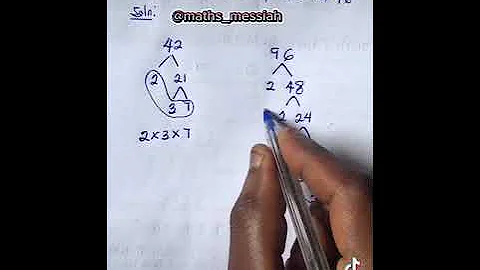 Soln:
@maths_messiah
42
2 21
3 7
2×3×7
96
2 48
2 24